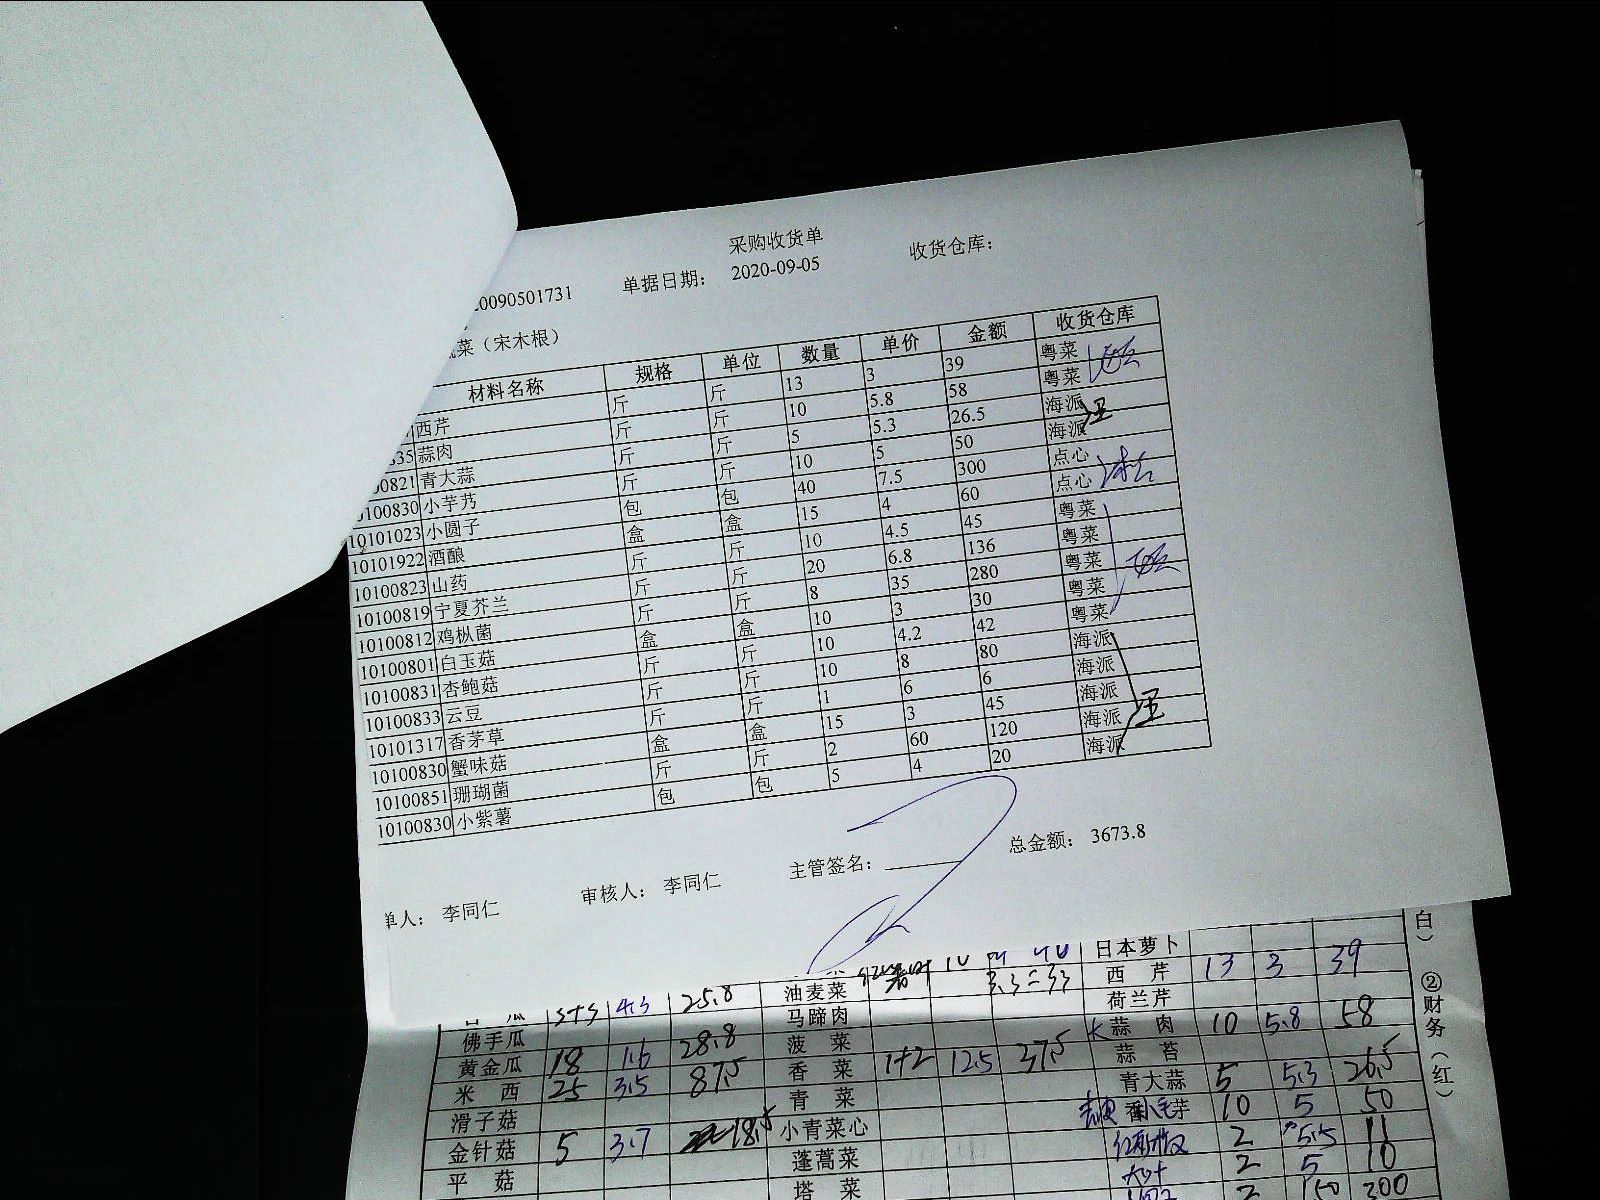 采购收货单
20090501731 单据日期： 2020-09-05 收货仓库：
菜（宋木根）
材料名称 规格 单位 数量 单价 金额 收货仓库
西芹 斤 斤 13 3 39 粤菜
835 蒜肉 斤 斤 10 5.8 58 粤菜
00821 青大蒜 斤 斤 5 5.3 26.5 海派
0100830 小芋艿 斤 斤 10 5 50 海派
10101023 小圆子 包 包 40 7.5 300 点心
10101922 酒酿 盒 盒 15 4 60 点心
10100823 山药 斤 斤 10 4.5 45 粤菜
10100819 宁夏芥兰 斤 斤 20 6.8 136 粤菜
10100812 鸡枞菌 斤 斤 8 35 280 粤菜
10100801 白玉菇 盒 盒 10 3 30 粤菜
10100831 杏鲍菇 斤 斤 10 4.2 42 粤菜
10100833 云豆 斤 斤 10 8 80 海派
10101317 香茅草 斤 斤 1 6 6 海派
10100830 蟹味菇 盒 盒 15 3 45 海派
10100851 珊瑚菌 斤 斤 2 60 120 海派
10100830 小紫薯 包 包 5 4 20 海派
单人： 李同仁 审核人： 李同仁 主管签名： 总金额： 3673.8
日本萝卜
瓜 5+5 4.3 25.8 油麦菜 3.3=33 西芹 13 3 39
佛手瓜 28.8 马蹄肉 荷兰芹
黄金瓜 18 1.6 菠菜 蒜肉 10 5.8 58
米西 25 3.5 87.5 香菜 1+2 12.5 37.5 蒜苔
滑子菇 青菜 青大蒜 5 5.3 26.5
金针菇 5 3.7 18.5 小青菜心 芽 10 5 50
平菇 蓬蒿菜 2 5.5 11
塔菜 2 5 10
2 200
白） ②财务（红）